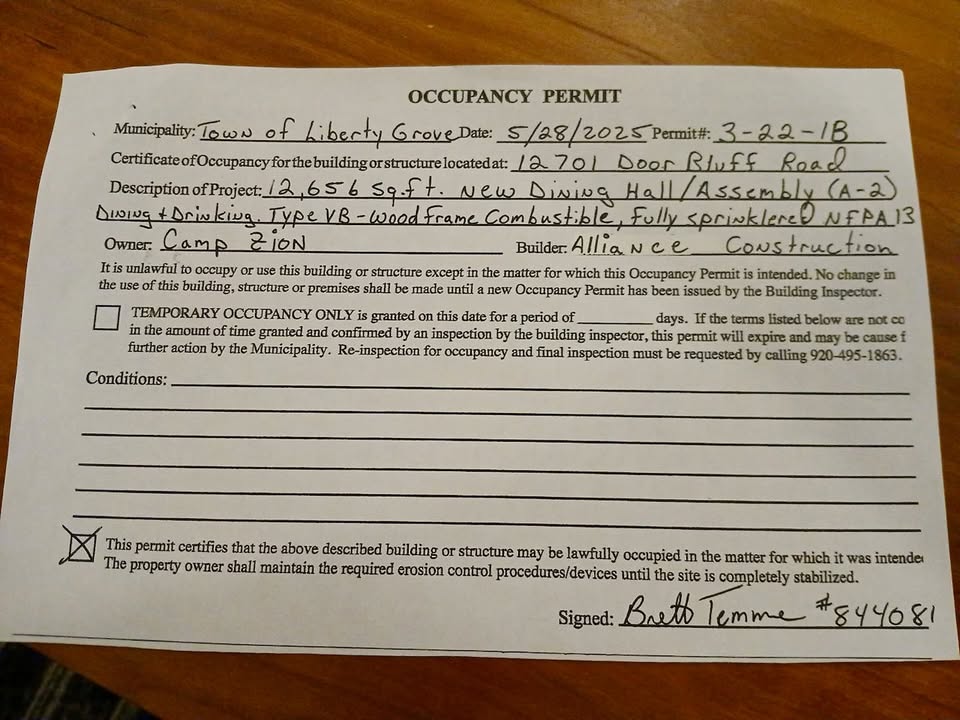 OCCUPANCY PERMIT
Municipality: Town of Liberty Grove Date: 5/28/2025 Permit#: 3-22-1B
Certificate of Occupancy for the building or structure located at: 12701 Door Bluff Road
Description of Project: 12,656 sq.ft. New Dining Hall/Assembly (A-2)
Dining + Drinking. Type VB - Wood Frame Combustible, Fully sprinklered NFPA 13
Owner: Camp Zion Builder: Alliance Construction
It is unlawful to occupy or use this building or structure except in the matter for which this Occupancy Permit is intended. No change in
the use of this building, structure or premises shall be made until a new Occupancy Permit has been issued by the Building Inspector.
TEMPORARY OCCUPANCY ONLY is granted on this date for a period of ________ days. If the terms listed below are not co
in the amount of time granted and confirmed by an inspection by the building inspector, this permit will expire and may be cause f
further action by the Municipality. Re-inspection for occupancy and final inspection must be requested by calling 920-495-1863.
Conditions:
This permit certifies that the above described building or structure may be lawfully occupied in the matter for which it was intende
The property owner shall maintain the required erosion control procedures/devices until the site is completely stabilized.
Signed: Brett Temme #844081